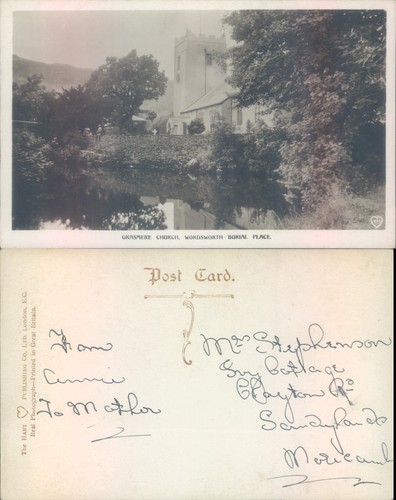 GRASMERE CHURCH, WORDSWORTH BURIAL PLACE.
Post Card.
The HART PUBLISHING CO., LTD. London, E.C.
Real Photograph—Printed in Great Britain.
From
Annie
To Mother
Mrs Stephenson
Cottage
Clayton Rd
Sandylands
Morecamb